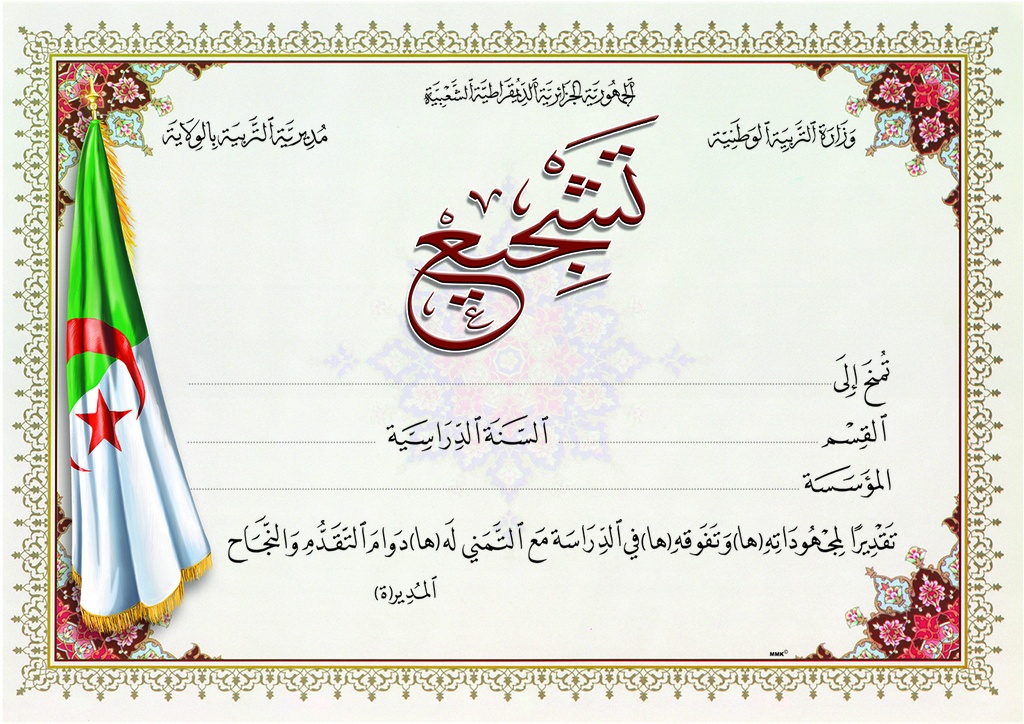 الجمهورية الجزائرية الديمقراطية الشعبية
وَزَارَة التَّربِيَة الوَطَنِيَة
مُدِيريَّة التَّربيَة بِالوَلَايَة
تَشْجِيعْ
تُمْنَحَ إِلَى
القِسْم السَّنَة الدِّرَاسِيَّة
المؤَسَسَة
تَقْدِيرًا لِمَجْهُودَاتِهِ(ها)وَتَفَوقهِ(ها)في الدِّرَاسَة مَعَ التَّمَني لَه(ها)دوَامَ التَقَدُّم وَالنَّجَاح
المُدِير(ة)
MMK©